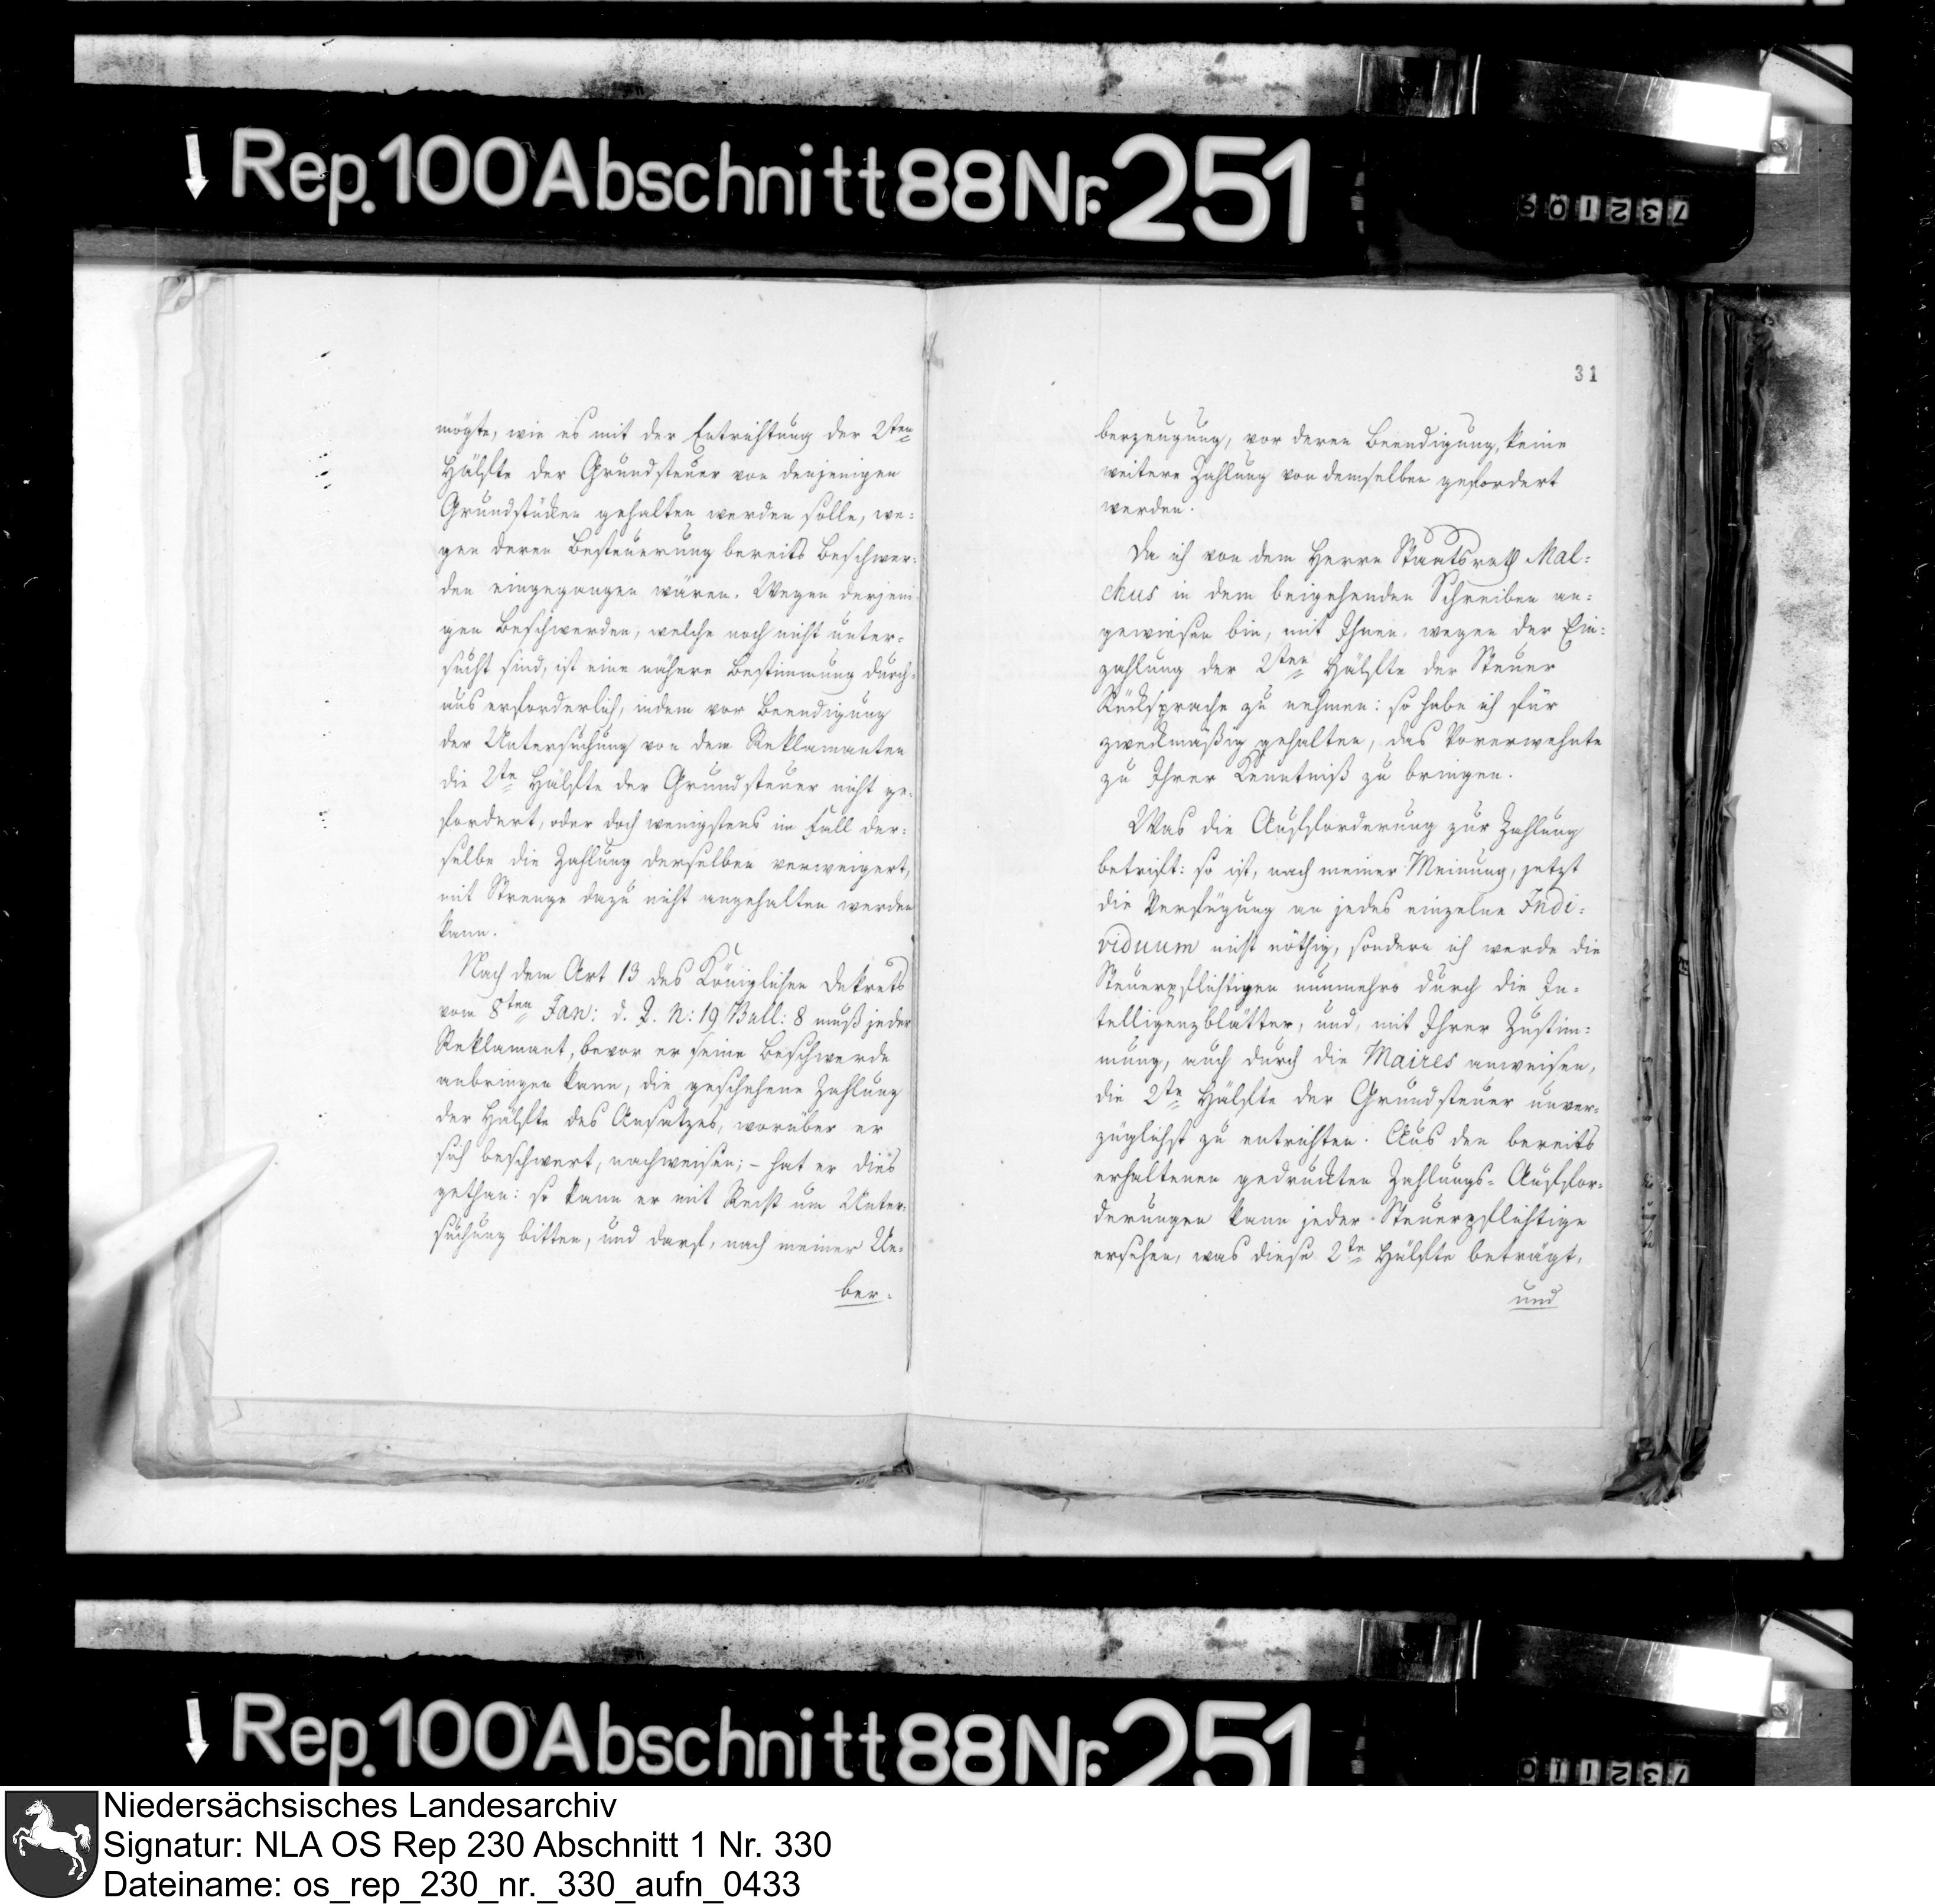 Rep. 100 Abschnitt 88 Nr. 251
732109
mögte, wie es mit der Entrichtung der 2ten
Hälfte der Grundsteuer von denjenigen
Grundstücken gehalten werden solle, we=
gen deren Besteuerung bereits Beschwer=
den eingegangen wären. Wegen derjeni
gen Beschwerden, welche noch nicht unter=
sucht sind, ist eine nähere Bestimmung durch=
aus erforderlich, indem vor Beendigung
der Untersuchung von dem Reklamanten
die 2te Hälfte der Grundsteuer nicht ge=
fordert, oder doch wenigstens im Fall der=
selbe die Zahlung derselben verweigert,
mit Strenge dazu nicht angehalten werden
kann.
Nach dem Art 13 des Königlichen Dekrets
vom 8ten Jan: d. J. N: 19 Bull: 8 muß jeder
Reklamant, bevor er seine Beschwerde
anbringen kann, die geschehene Zahlung
der Hälfte des Ansatzes, worüber er
sich beschwert, nachweisen; - hat er dies
gethan: so kann er mit Recht um Unter=
suchung bitten, und darf, nach meiner Ue=
ber=
31
berzeugung, vor deren Beendigung, keine
weitere Zahlung von demselben gefordert
werden.
Da ich von dem Herrn Staatsrath Mal=
chus in dem beigehenden Schreiben an=
gewiesen bin, mit Ihnen, wegen der Ein=
zahlung der 2ten Hälfte der Steuer
Rücksprache zu nehmen: so habe ich für
zweckmäßig gehalten, das Vorerwehnte
zu Ihrer Kenntniß zu bringen.
Was die Aufforderung zur Zahlung
betrift: so ist, nach meiner Meinung, jetzt
die Verfügung an jedes einzelne Indi=
viduum nicht nöthig, sondern ich werde die
Steuerpflichtigen nunmehro durch die In=
telligenzblätter, und, mit Ihrer Zustim=
mung, auch durch die Maires anweisen,
die 2te Hälfte der Grundsteuer unver=
züglichst zu entrichten. Aus den bereits
erhaltenen gedruckten Zahlungs= Auffor=
derungen kann jeder Steuerpflichtige
ersehen, was diese 2te Hälfte beträgt,
und
Rep. 100 Abschnitt 88 Nr. 251
732110
Niedersächsisches Landesarchiv
Signatur: NLA OS Rep 230 Abschnitt 1 Nr. 330
Dateiname: os_rep_230_nr._330_aufn_0433